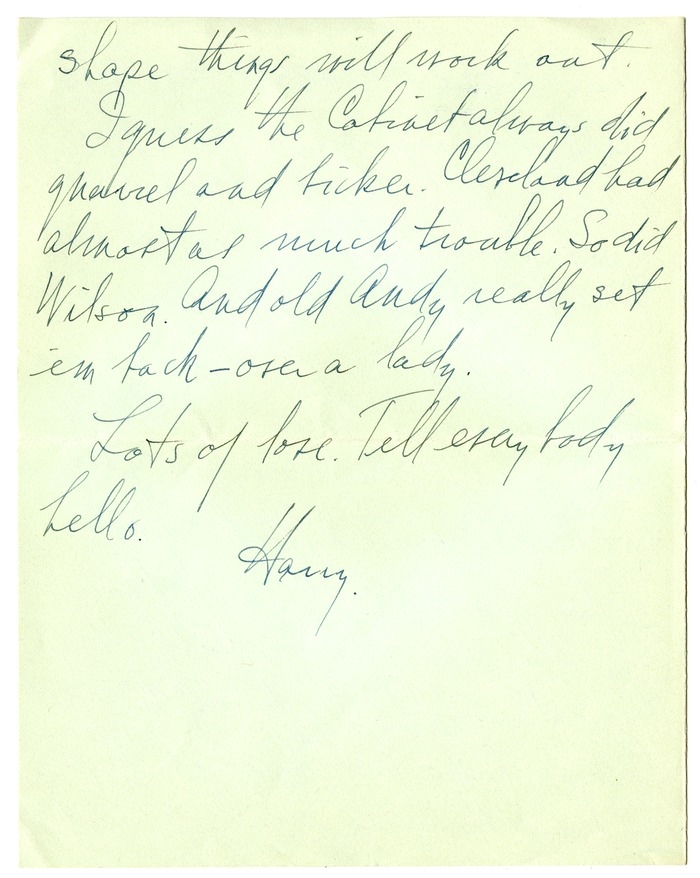 shape things will work out.
I guess the Cabinet always did
quarrel and bicker. Cleveland had
almost as much trouble. So did
Wilson. And old Andy really set
'em back – over a lady.
Lots of love. Tell everybody
hello.
Harry.